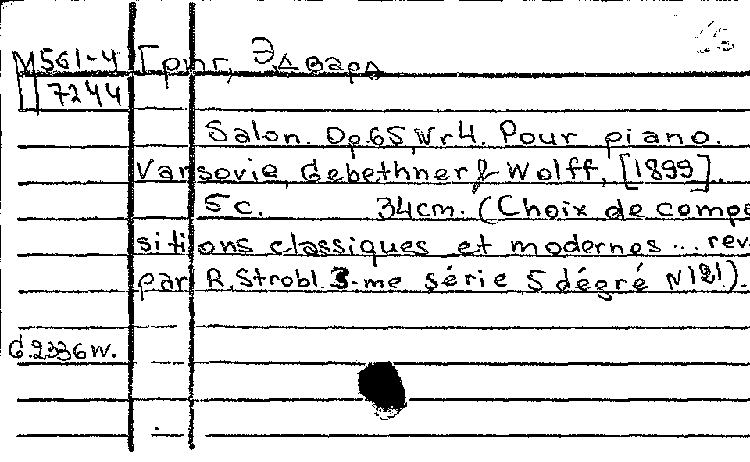 М561-4 Григ, Эдвард
7244
Salon. Op.65, Nr4. Pour piano.
Varsovie, Gebethner & Wolff, [1899].
5c. 34cm. (Choix de compo
sitions classiques et modernes... rev
par R. Strobl 3-me série 5 dégré N121).
G.2336W.